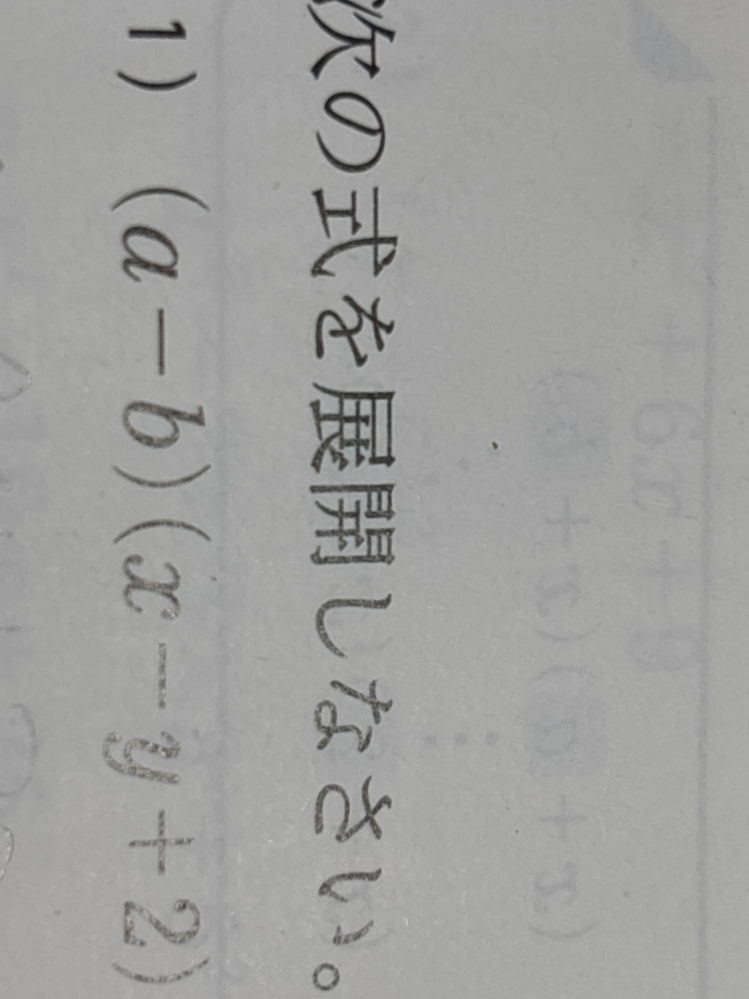 次の式を展開しなさい。
1) (a−b)(x−y+2)